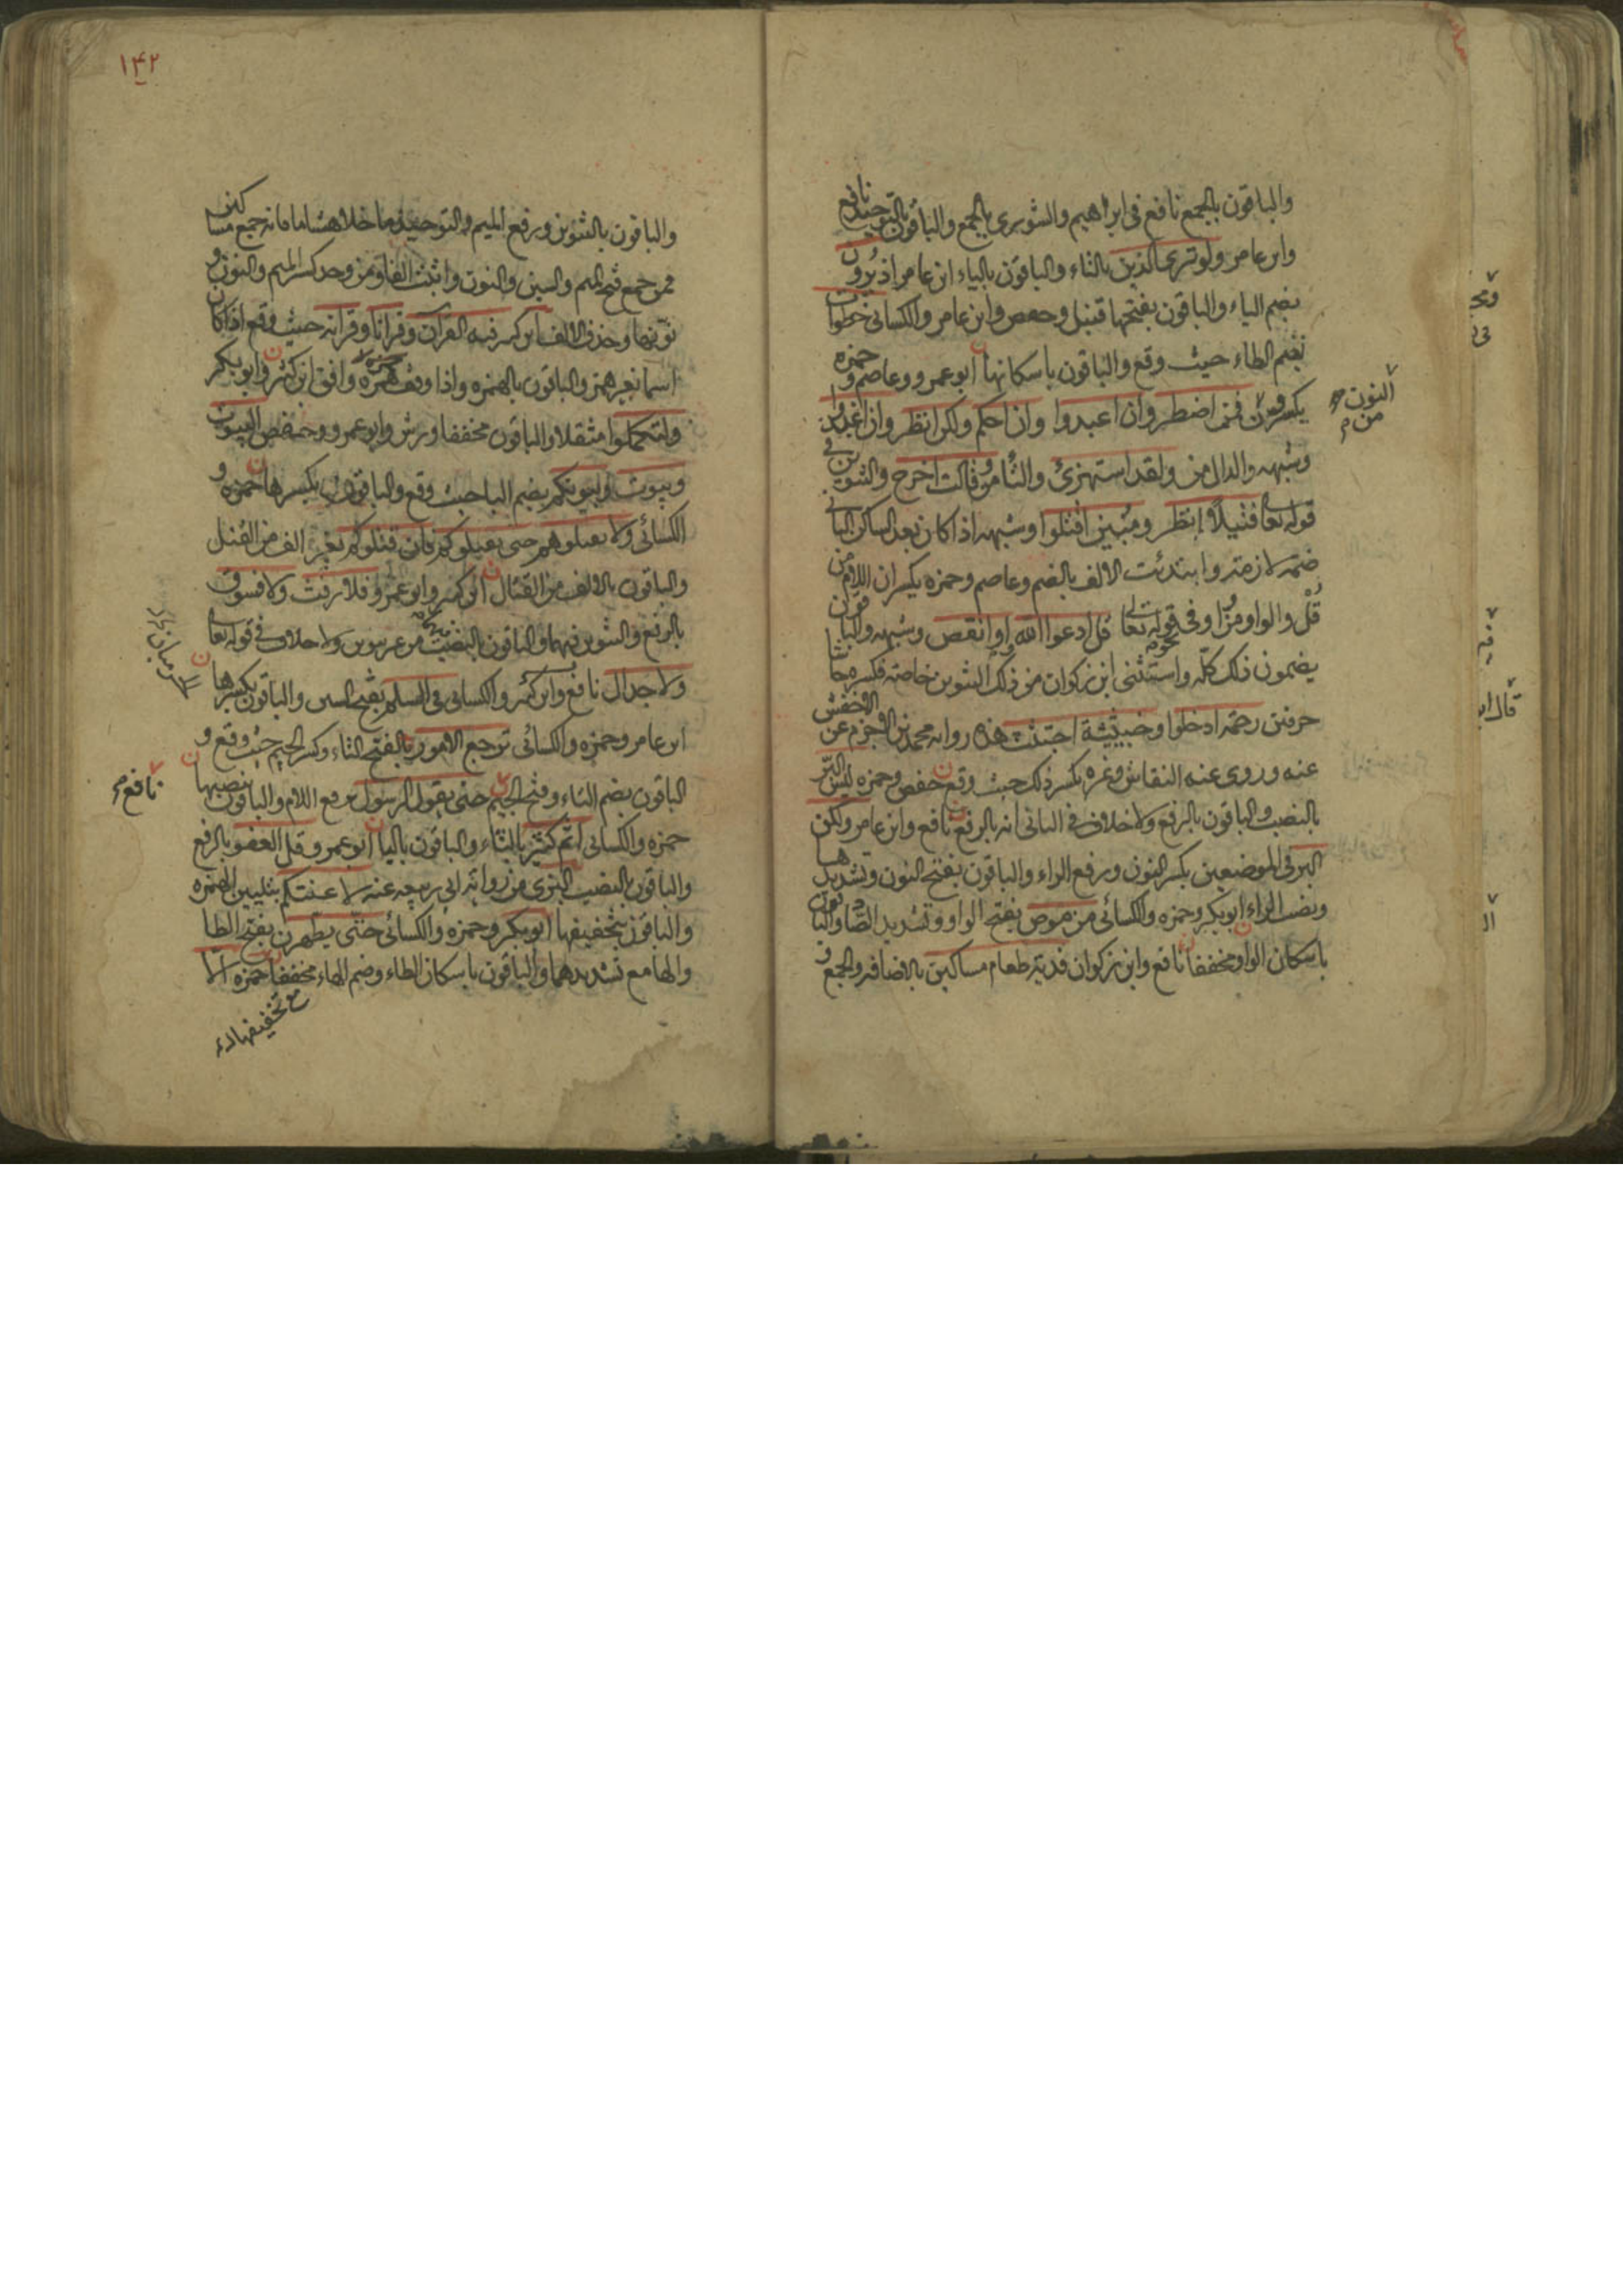 والباقون بالجمع نافع في ابراهيم والشورى بالجمع والباقون بالتوحيد نافع
وابن عامر ولو ترى الذين بالتاء والباقون بالياء ابن عامر اذ يرون
بضم الياء والباقون بفتحها قنبل وحفص وابن عامر والكسائي خطوات
بضم الطاء حيث وقع والباقون باسكانها ابو عمرو وعاصم وحمزه
يكسرون فمن اضطر وان اعبدوا وان احكم ولكن انظر وان اغدوا
النون من
وشبهه والدال من ولقد استهزئ والتا من وقالت اخرج والتنوين في
قوله تعا فتيلا انظر ومبين اقتلوا وشبهه اذا كان بعد الساكن الثاني
ضمة لازمة وابتدئت الالف بالضم وعاصم وحمزه يكسران اللام من
قل والواو من او في قوله تعالى قل ادعوا الله او انقص وشبهه والباقون
يضمون ذلك كله واستثنى ابن ذكوان من ذلك التنوين خاصة فكسره حاشا
حرفين رحمة ادخلوا وخبيثة اجتثت هذه رواية محمد بن الاخرم عن الاخفش
عنه وروى عنه النقاش وغيره بكسر ذلك حيث وقع حفص وحمزه ليس البر
بالنصب والباقون بالرفع ولا خلاف في الثاني انه بالرفع نافع وابن عامر ولكن
البر في الموضعين بكسر النون ورفع الراء والباقون بفتح النون وتشديدها
ونصب الراء ابو بكر وحمزه والكسائي من موص بفتح الواو وتشديد الصاد والباقون
باسكان الواو مخففا نافع وابن ذكوان فدية طعام مساكين بالاضافة والجمع و
١٤٢
والباقون بالتنوين ورفع الميم والتوحيد ما خلا هشاما فانه جمع مساكين
فمن جمع فتح الميم والسين والنون واثبت الفا ومن وحد كسر الميم والنون و
نونها وحذف الالف ابن كثير فيه القرآن وقرانا وقرانه حيث وقع اذا كان
اسما بغير همز والباقون بالهمزه واذا وقف حمزه وافق ابن كثير وابو بكر
ولتكملوا مثقلا والباقون مخففا ورش وابو عمرو وحفص البيوت
وبيوت وبيوتكم بضم الباء حيث وقع والباقون بكسرها حمزه و
الكسائي ولا تقتلوهم حتى يقتلوكم فان قتلوكم بغير الف من القتل
والباقون بالالف من القتال ابن كثير وابو عمرو فلا رفث ولا فسوق
بالرفع والتنوين فيهما والباقون بالنصب من غير تنوين ولا خلاف في قوله تعالى
ولا جدال نافع وابن كثير والكسائي في السلم بفتح السين والباقون بكسرها
ابن عامر وحمزه والكسائي ترجع الامور بالفتح التاء وكسر الجيم حيث وقع و
الباقون بضم التاء وفتح الجيم حتى يقول الرسول برفع اللام والباقون بنصبها
نافع
حمزه والكسائي اثم كثير بالثاء والباقون بالباء ابو عمرو قل العفو بالرفع
والباقون بالنصب البزي من رواية ابي ربيعه عنه لاعنتكم بتليين الهمزه
والباقون بتخفيفها ابو بكر وحمزه والكسائي حتى يطهرن بفتح الطا
والها مع تشديدهما والباقون باسكان الطاء وضم الهاء مخففا حمزه الا